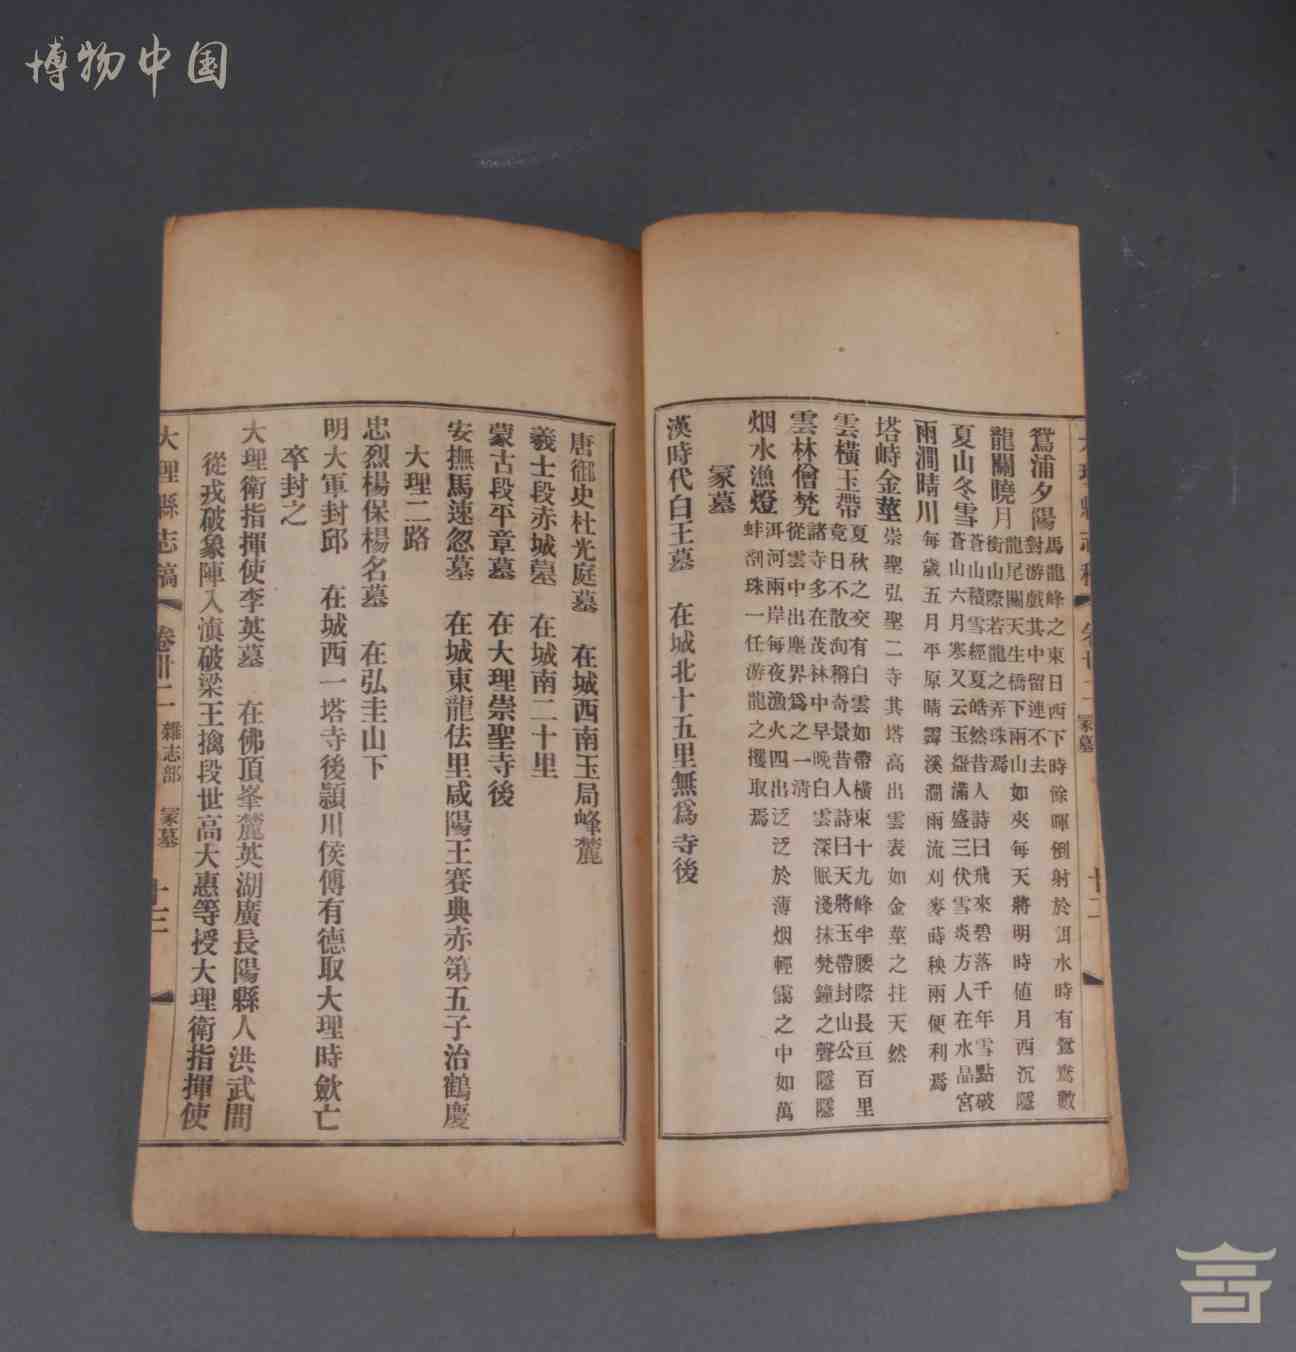 博物中国
鴛浦夕陽 馬龍峰之東日西下時餘暉倒射於洱水時有鴛鴦數
對游戲其中留連不去
龍關曉月 龍尾關天生橋下兩山如夾每天將明時値月西沉隱
銜山際若龍之弄珠焉
夏山冬雪 蒼山積雪經夏皓然昔人詩曰飛來碧落千年雪點破
蒼山六月寒又云玉盤滿盛三伏雪炎方人在水晶宮
兩澗晴川 每歲五月平原晴霽溪澗雨流刈麥蒔秧兩便利焉
塔峙金莖 崇聖弘聖二寺其塔高出雲表如金莖之拄天然
雲橫玉帶 夏秋之交有白雲如帶橫束十九峰半腰際長亘百里
竟日不散洵稱奇景昔人詩曰天將玉帶封山公
雲林僧梵 諸寺多在茂林中早晚白雲深眠淺抹梵鐘之聲隱隱
從雲中出塵界爲之一清
烟水漁燈 洱河兩岸每夜漁火四出泛泛於薄烟輕靄之中如萬
蚌剖珠一任游龍之攫取焉
冢墓
漢時代白王墓 在城北十五里無爲寺後
唐御史杜光庭墓 在城西南玉局峰麓
義士段赤城墓 在城南二十里
蒙古段平章墓 在大理崇聖寺後
安撫馬速忽墓 在城東龍佉里咸陽王賽典赤第五子治鶴慶
大理二路
忠烈楊保楊名墓 在弘圭山下
明大軍封邱 在城西一塔寺後潁川侯傅有德取大理時歛亡
卒封之
大理衛指揮使李英墓 在佛頂峯麓英湖廣長陽縣人洪武間
從戎破象陣入滇破梁王擒段世高大惠等授大理衛指揮使
大理縣志稿 卷卅二 雜志部 冢墓 十三